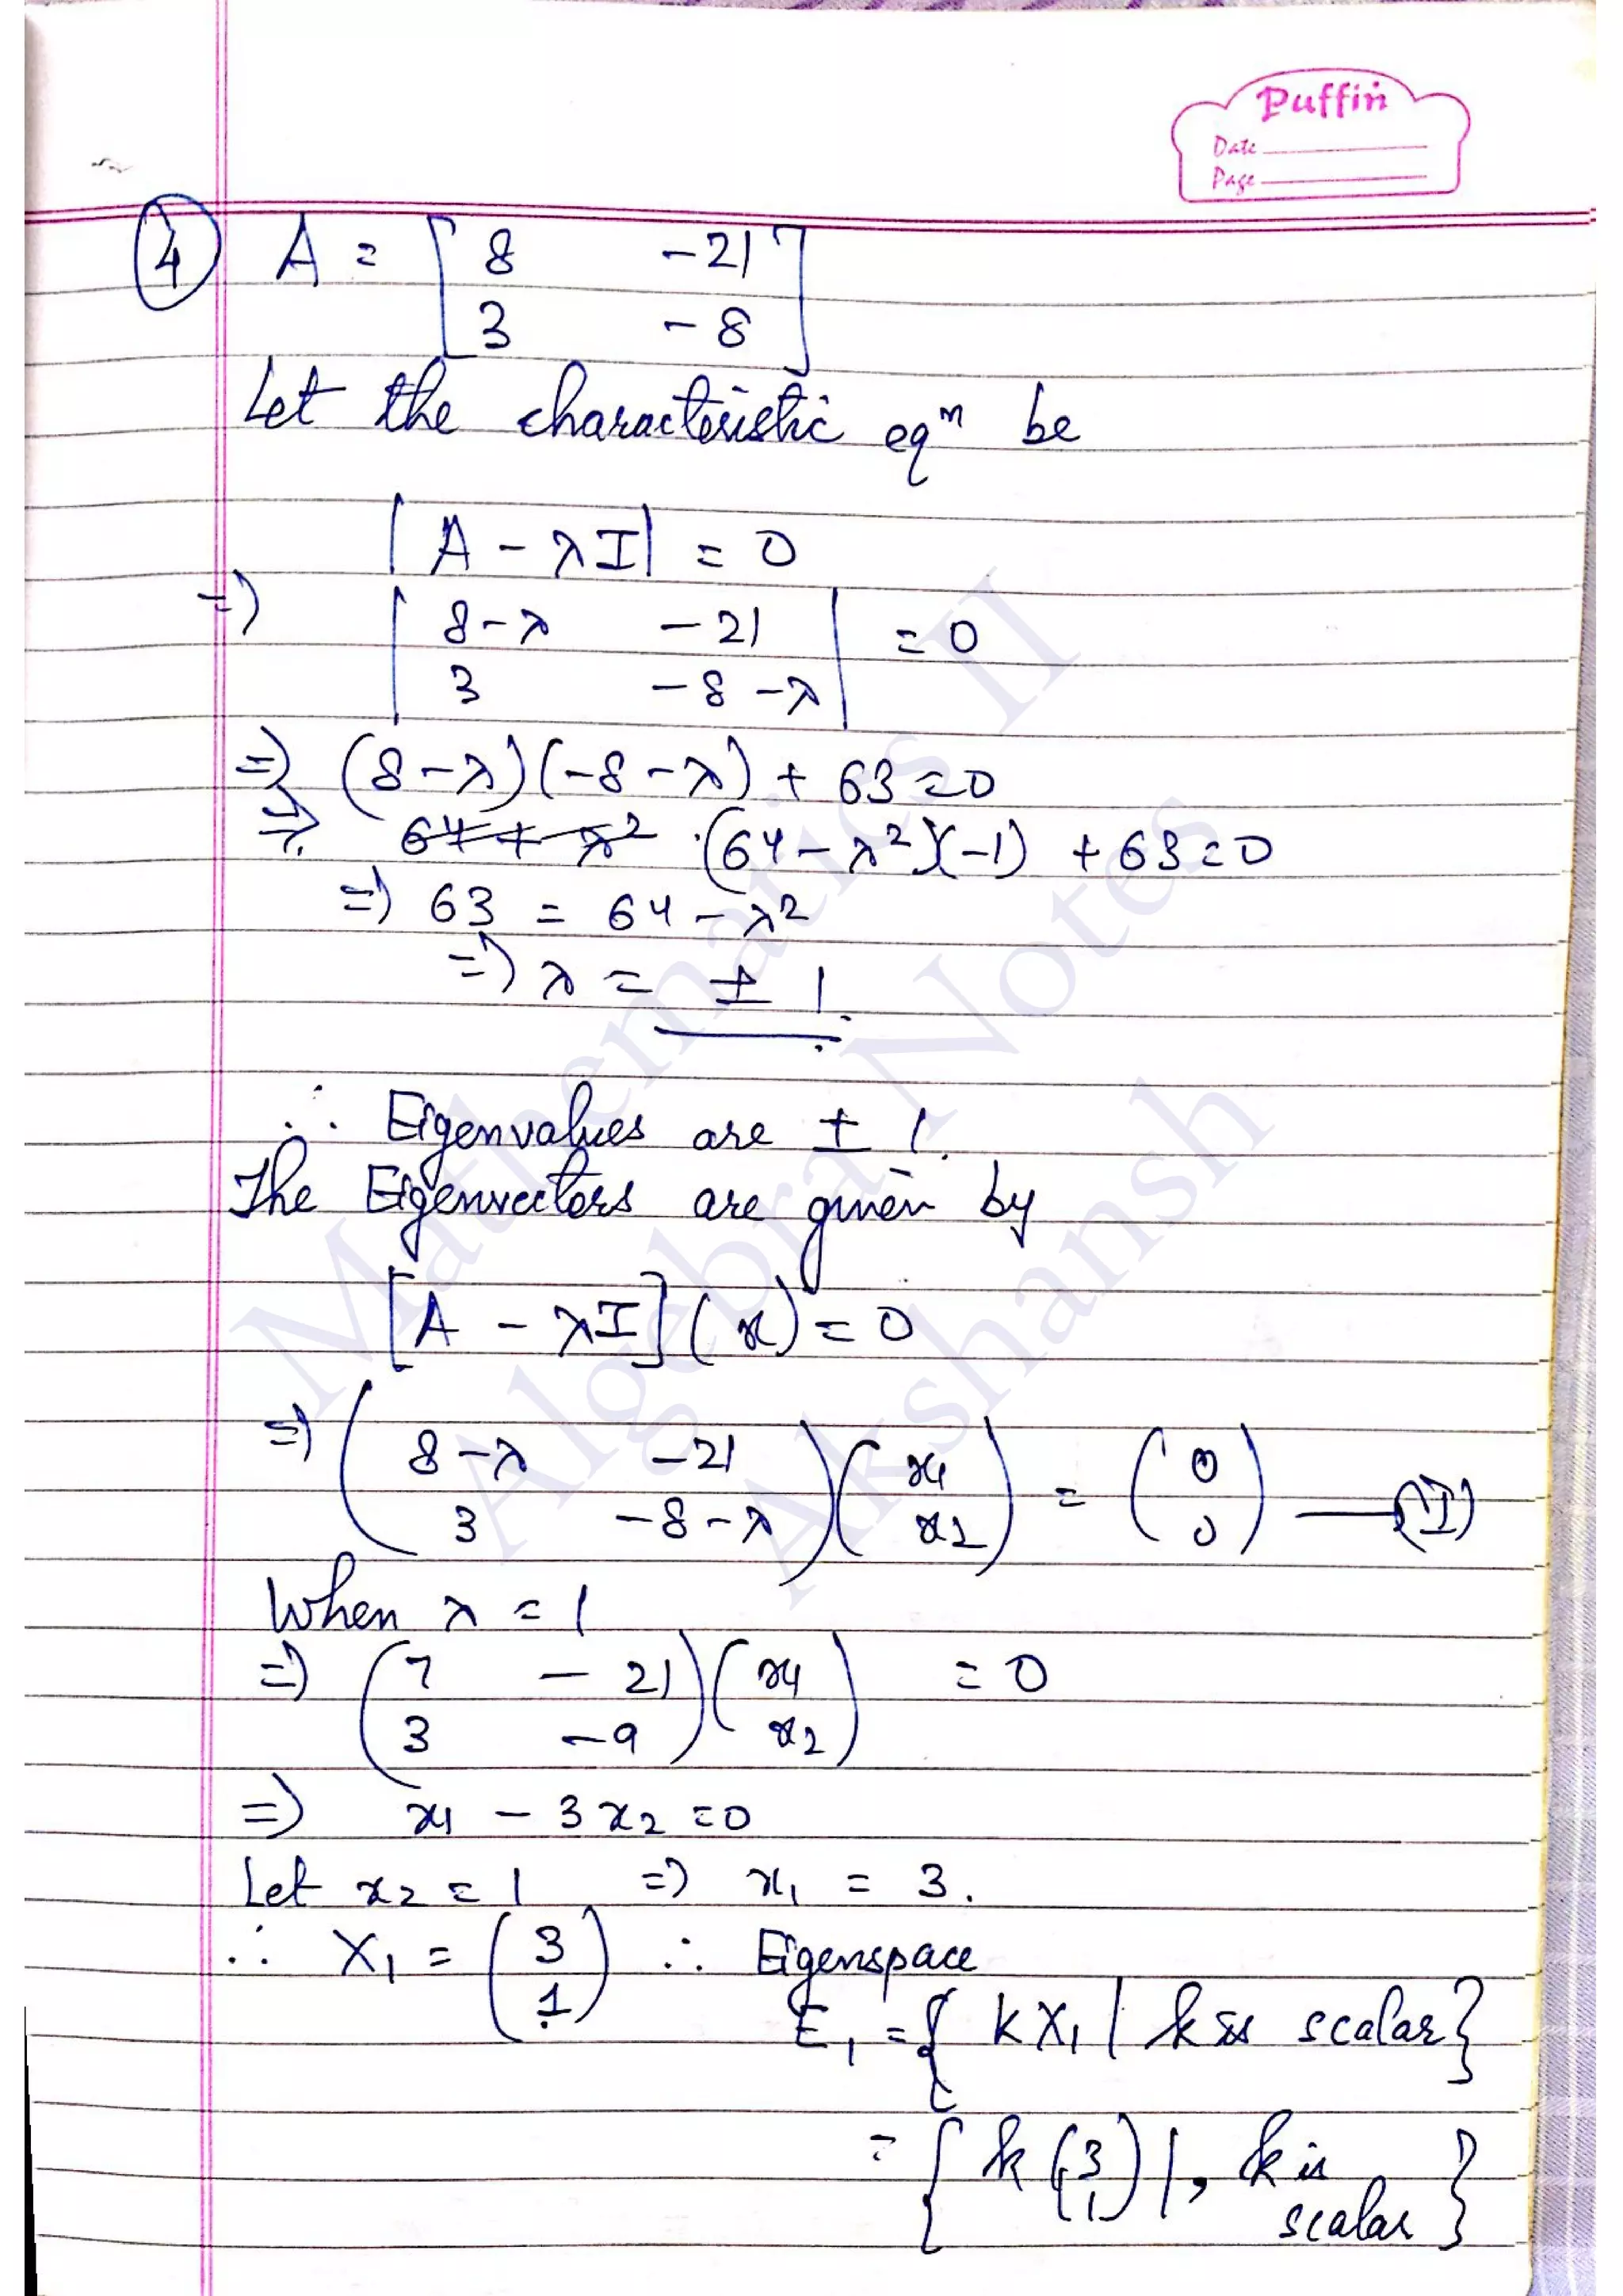 Puffin
Date
Page
4 A = [ 8 -21
3 -8 ]
Let the characteristic eqⁿ be
|A - λI| = 0
=) | 8-λ -21 | = 0
| 3 -8-λ |
=) (8-λ)(-8-λ) + 63 = 0
=> 64 + λ² (64 - λ²)(-1) + 63 = 0
=) 63 = 64 - λ²
=) λ = ± 1.
∴ Eigenvalues are ± 1.
The Eigenvectors are given by
[A - λI](x) = 0
=) ( 8-λ -21 ) ( x1 ) = ( 0 ) —(I)
( 3 -8-λ ) ( x2 ) ( 0 )
When λ = 1
=) ( 7 -21 ) ( x1 ) = 0
( 3 -9 ) ( x2 )
=) x1 - 3x2 = 0
Let x2 = 1 =) x1 = 3.
∴ X1 = ( 3 ) ∴ Eigenspace
( 1 ) E1 = { kX1 | k is scalar }
= { k ( 3 ) |, k is
( 1 ) scalar }
Mathematics II
Algebra Notes
Akshansh